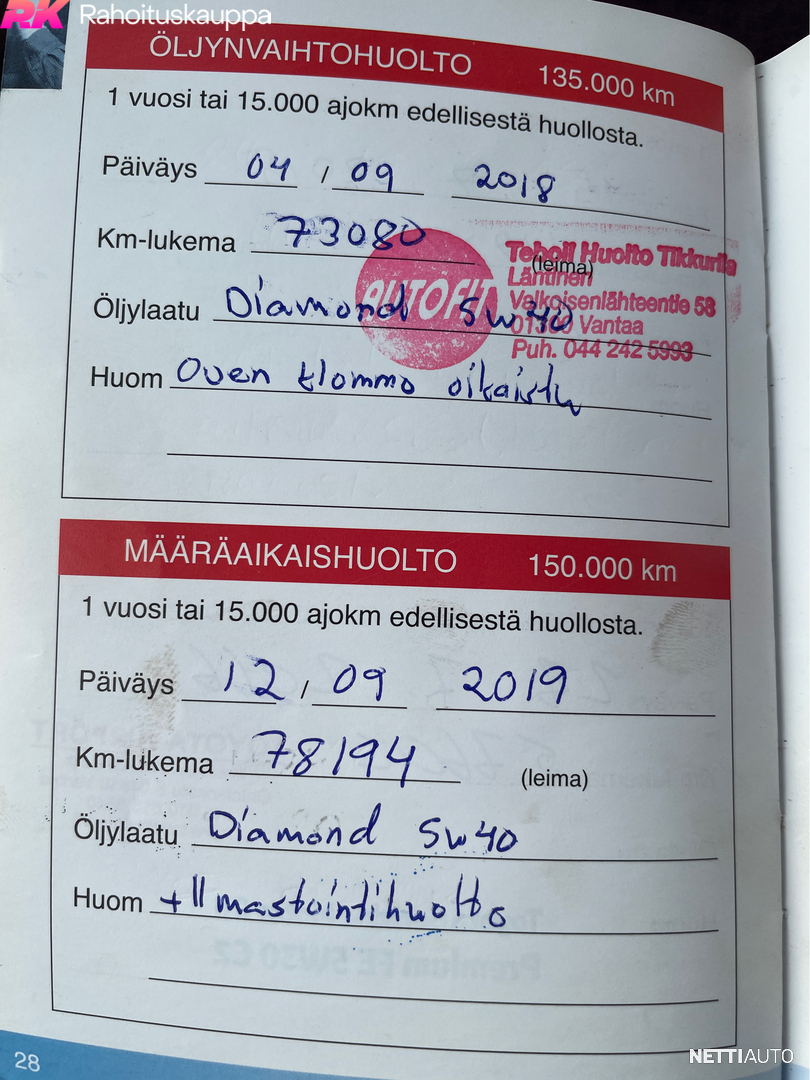 RK Rahoituskauppa
ÖLJYNVAIHTOHUOLTO 135.000 km
1 vuosi tai 15.000 ajokm edellisestä huollosta.
Päiväys 04 / 09 2018
Km-lukema 73080 (leima)
AUTOFIT
Teboil Huolto Tikkurila
Läntinen
Valkoisenlähteentie 58
01300 Vantaa
Puh. 044 242 5993
Öljylaatu Diamond 5w40
Huom Oven klommo oikaistu
MÄÄRÄAIKAISHUOLTO 150.000 km
1 vuosi tai 15.000 ajokm edellisestä huollosta.
Päiväys 12 / 09 2019
Km-lukema 78194 (leima)
Öljylaatu Diamond 5w40
Huom + Ilmastointihuolto
28
NETTIAUTO